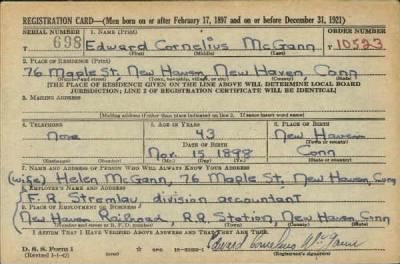 REGISTRATION CARD—(Men born on or after February 17, 1897 and on or before December 31, 1921)
SERIAL NUMBER 1. NAME (Print) ORDER NUMBER
698 Edward Cornelius McGann 10523
(First) (Middle) (Last)
2. PLACE OF RESIDENCE (Print)
76 Maple St, New Haven, New Haven, Conn
(Number and street) (Town, township, village, or city) (County) (State)
[THE PLACE OF RESIDENCE GIVEN ON THE LINE ABOVE WILL DETERMINE LOCAL BOARD
JURISDICTION; LINE 2 OF REGISTRATION CERTIFICATE WILL BE IDENTICAL]
3. MAILING ADDRESS
[Mailing address if other than place indicated on line 2. If same insert word same]
4. TELEPHONE 5. AGE IN YEARS 6. PLACE OF BIRTH
None 43 New Haven
DATE OF BIRTH (Town or county)
Nov. 15 1898 Conn
(Exchange) (Number) (Mo.) (Day) (Yr.) (State or country)
7. NAME AND ADDRESS OF PERSON WHO WILL ALWAYS KNOW YOUR ADDRESS
(wife) Helen McGann, 76 Maple St, New Haven, Conn
8. EMPLOYER'S NAME AND ADDRESS
F. R. Stremlau, division accountant
9. PLACE OF EMPLOYMENT OR BUSINESS
New Haven Railroad, R.R. Station, New Haven Conn
(Number and street or R. F. D. number) (Town) (County) (State)
I AFFIRM THAT I HAVE VERIFIED ABOVE ANSWERS AND THAT THEY ARE TRUE.
D. S. S. Form 1 Edward Cornelius McGann
(Revised 1-1-42) (over) GPO (Registrant's signature)